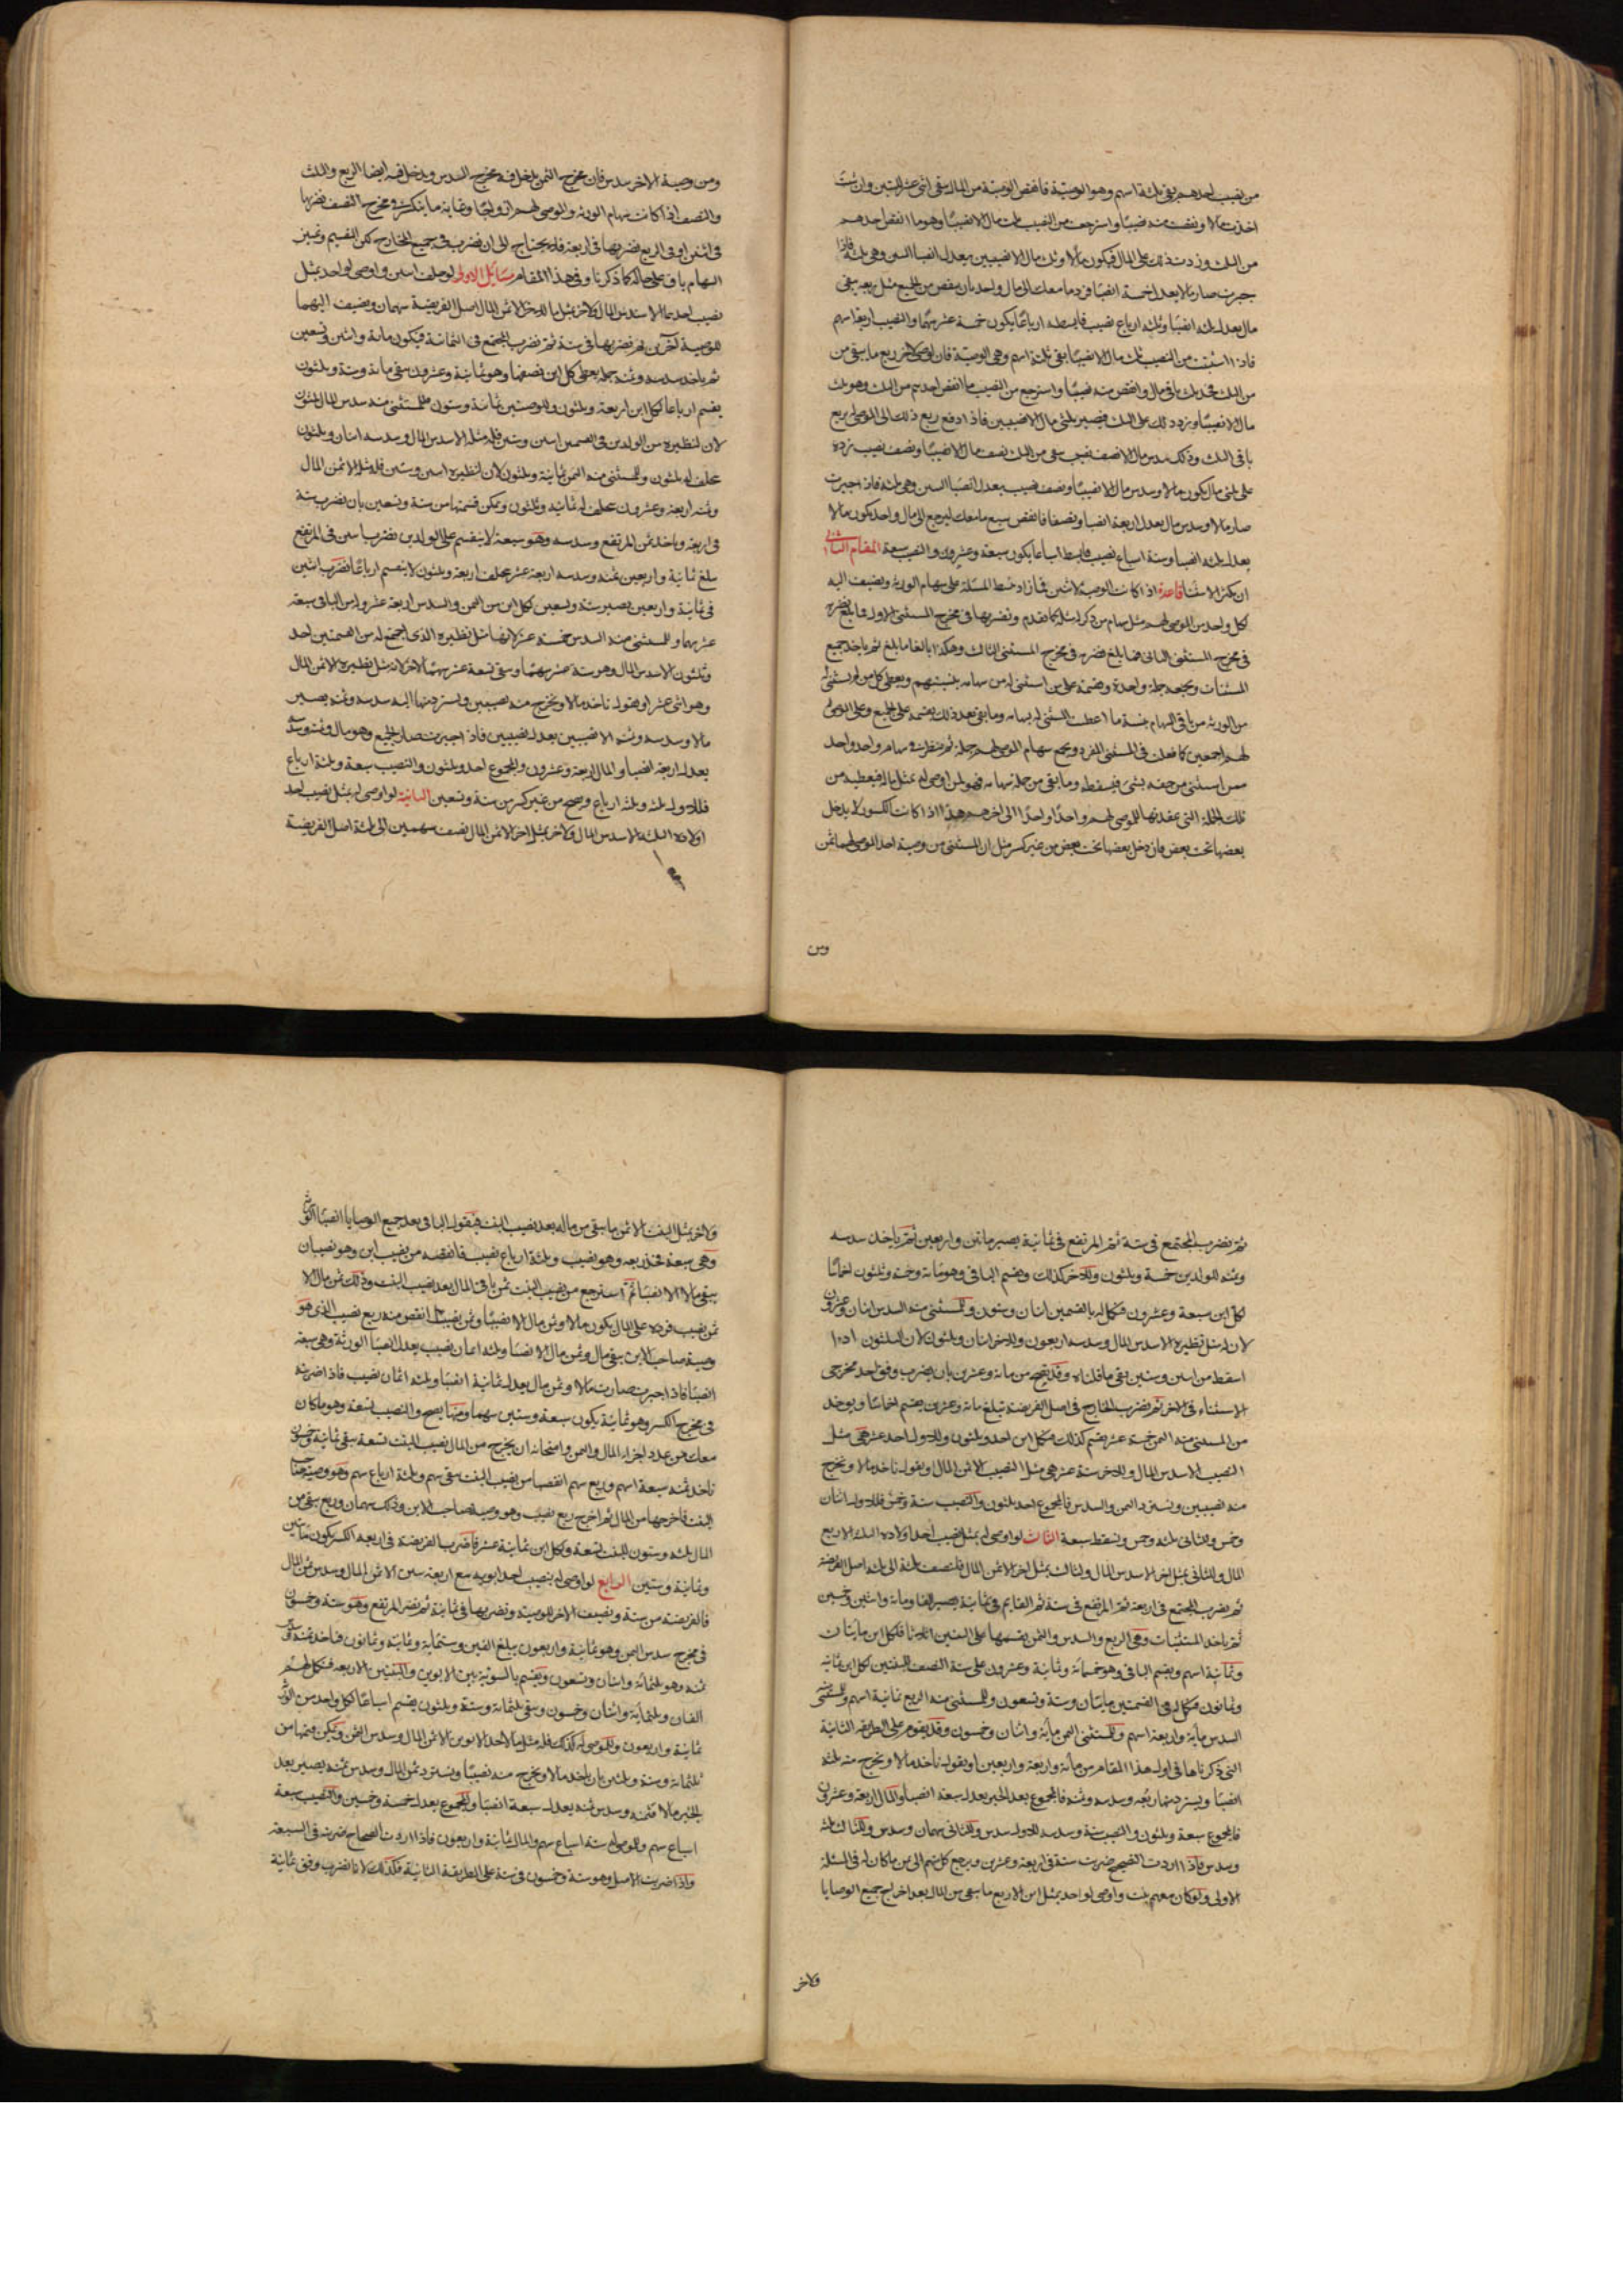 من نصيب احدهم يبقى ثلثة اسهم وهو الوصية فانقص الوصية من المال يبقى اثنى عشر للبنين وان شئت
اخذت مالا ونقصت منه نصيبا واسترجعت من النصيب ثلث مال الا نصيبا وهو ما انقص احدهم
من الثلث وزدت ذلك على المال فيكون مالا وثلث مال الا نصيبين يعدل انصبا البنين وهى ثلثة فاذا
جبرت صار مالا يعدل خمسة انصبا فرد ما معك الى مال واحد بان ينقص من الجميع مثل ربعه يبقى
مال يعدل ثلثة انصبا وثلثه ارباع نصيب فابسطه ارباعا يكون خمسة عشر سهما والنصيب اربعة اسهم
فاذا استثنيت من النصيب ثلث مال الا نصيبا يبقى ثلثة اسهم وهى الوصية فان اوصى لاخر ربع ما يبقى من
من الثلث فخذ ثلث مال وانقص منه نصيبا واسترجع من النصيب ما انقص احدهم من الثلث وهو ثلث
مال الا نصيبا وزد ذلك على الثلث فيصير ثلثى مال الا نصيبين فاذا دفع ربع ذلك الى الموصى له بربع
باقى الثلث وذلك سدس مال الا نصف نصيب يبقى من الثلث نصف مال الا نصيبا ونصف نصيب زده
على ثلثى مال يكون مالا وسدس مال الا نصيبا ونصف نصيب يعدل انصبا البنين وهى ثلثة فاذا جبرت
صار مالا وسدس مال يعدل اربعة انصبا ونصفا فانقص سبع ما معك ليرجع الى مال واحد يكون مالا
يعدل ثلثه انصبا وستة اسباع نصيب فابسط اسباعا يكون سبعة وعشرون والنصيب سبعة المقام الثانى
ان يكثر الاستثنا قاعدة اذا كانت الوصية لاثنين فما زاد ضبط المسئلة على سهام الورثة ويضيف اليه
لكل واحد من الموصى لهم مثل سهام من ذكر له كما تقدم وتضربها فى مخرج المستثنى الاول فما بلغ تضربه
فى مخرج المستثنى الثانى فما بلغ تضربه فى مخرج المستثنى الثالث وهكذا بالغا ما بلغ ثم ياخذ جميع
المستثنيات ويجمعه جملة واحدة وتضمه على من استثنى له من سهامه بنسبتهم ويعطى كل من لم يستثن له
من الورثة من باقى السهام بنسبة ما اعطيت المستثنى له بسهامه وما بقى بعد ذلك يقسمه على الجميع وعلى الموصى
لهم اجمعين كما فعلت فى المستثنى المفرد ويجمع سهام الموصى لهم جملة ثم تنظر فى سهام واحد واحد
ممن استثنى من حقه بشى فيسقطه وما بقى من جملة سهامه فهو لمن اوصى له بمثل ماله فيعطيه من
تلك الجملة التى عقدتها للموصى لهم واحدا واحدا الى اخرهم هذا اذا كانت الكسور لا يدخل
بعضها تحت بعض فان دخل بعضها تحت بعض من غير كسر مثل ان المستثنى من وصية احد الموصى لهما ثمن
ومن
ومن وصية الاخر سدس فان مخرج الثمن يدخل فيه مخرج السدس ويدخل فيه ايضا الربع والثلث
والنصف اذا كانت سهام الورثة والموصى لهم ازواجا وغاية ما ينكسر فى مخرج النصف فتضربها
فى اثنين او فى الربع فتضربها فى اربعة فلا يحتاج الى ان تضرب فى جميع المخارج لكن التقسيم وتميز
السهام باق على حاله كما ذكرنا وفى هذا المقام مسائل الاولى لو خلف ابنين واوصى لواحد بمثل
نصيب احدهما الا سدس المال ولاخر بمثل ما للاخر الا ثمن المال اصل الفريضة سهمان ويضيف اليهما
للوصية آخرين ثم تضربها فى ستة ثم تضرب المجتمع فى الثمانية فيكون مائة واثنين وتسعين
ثم ياخذ سدسه وثمنه جملة يعطى كل ابن نصفها وهو ثمانية وعشرون يبقى مائة وستة وثلثون
يقسم ارباعا لكل ابن اربعة وثلثون وللوصيتين ثمانية وستون فللمستثنى منه سدس المال ثلثون
لان لنظيره من الولدين فى القسمين اثنين وستين فله مثله الا سدس المال وسدسه اثنان وثلثون
يخلف له ثلثون وللمستثنى منه الثمن ثمانية وثلثون لان لنظيره اثنين وستين فله مثله الا ثمن المال
وثمنه اربعة وعشرون يخلف له ثمانية وثلثون ويمكن قسمتها من ستة وتسعين بان تضرب ستة
فى اربعة وياخذ ثمن المرتفع وسدسه وهو سبعة لا ينقسم على الولدين تضرب اثنين فى المرتفع
يبلغ ثمانية واربعين ثمنه وسدسه اربعة عشر يخلف اربعة وثلثون لا ينقسم ارباعا فتضرب اثنين
فى ثمانية واربعين يصير ستة وتسعين لكل ابن من الثمن والسدس اربعة عشر ومن الباقى سبعة
عشر سهما وللمستثنى منه السدس خمسة عشر لانها مثل نظيره الذى اجتمع له من القسمتين احد
وثلثون الا سدس المال وهو ستة عشر سهما ويبقى تسعة عشر سهما للاخر لانه مثل نظيره الا ثمن المال
وهو اثنى عشر او نقول ناخذ مالا ونخرج منه نصيبين ونسترد منهما اليه سدسه وثمنه يصير
مالا وسدسه وثمنه الا نصيبين يعدل نصيبين فاذا جبرت صار الجميع وهو مال وثمنه وسدسه
يعدل اربعة انصبا والمال اربعة وعشرون والمجموع احد وثلثون والنصيب سبعة وثلثة ارباع
فللاول ثلثه وثلثة ارباع وتصح من غير كسر من ستة وتسعين الثانية لو اوصى له بمثل نصيب احد
اولاده الثلثة الا سدس المال ولاخر بمثل اخر الا ثمن المال نضيف سهمين الى ثلثة اصل الفريضة
ثم تضرب المجتمع فى ستة ثم المرتفع فى ثمانية يصير مائتين واربعين ثم ياخذ سدسه
وثمنه للولدين خمسة وثلثون وللاخر كذلك ويقسم الباقى وهو مائة وخمسة وثلثون اخماسا
لكل ابن سبعة وعشرون فكمال له بالقسمين اثنان وستون وللمستثنى منه السدس اثنان وعشرون
لان له مثل نظيره الا سدس المال وسدسه اربعون وللاخر اثنان وثلثون لان الثلثون اذا
اسقط من اثنين وستين بقى ما قلناه وقد يصح من مائة وعشرين بان يضرب وفق احد مخرجى
الاستثناء فى الاخر ثم تضرب الخارج فى اصل الفريضة تبلغ مائة وعشرين يقسم اخماسا ويوخذ
من المستثنى منه الثمن خمسة عشر يقسم كذلك فلكل ابن احد وثلثون وللاول احد عشر هى مثل
النصيب الا سدس المال وللاخر ستة عشر هى مثل النصيب الا ثمن المال ونقول ناخذ مالا ونخرج
منه نصيبين ونسترد الثمن والسدس فالمجموع احد وثلثون والنصيب ستة وخمس فللاول اثنان
وخمس وللثانى ثلثه وخمس ونسقط سبعة الثالث لو اوصى له بمثل نصيب احد اولاده الثلثة الا ربع
المال وللثانى بمثل اخر الا سدس المال ولثالث بمثل اخر الا ثمن المال فلنضف ثلثة الى ثلثة اصل الفريضة
ثم تضرب المجتمع فى اربعة ثم المرتفع فى ستة ثم القايم فى ثمانية يصير الفا ومائة واثنين وخمسين
ثم ياخذ المستثنيات وهى الربع والسدس والثمن يقسمها على البنين اثلاثا فلكل ابن مايتان
وثمانية اسهم ويقسم الباقى وهو خمسمائة وثمانية وعشرون على ستة النصف للبنين لكل ابن ثمانية
وثمانون فكمال له فى القسمتين مايتان وستة وتسعون وللمستثنى منه الربع ثمانية اسهم وللمستثنى منه
السدس ماية واربعة اسهم وللمستثنى الثمن ماية واثنان وخمسون وقد يقوم على الطريقة الثانية
التى ذكرناها فى اول هذا المقام من مائة واربعة واربعين او نقول ناخذ مالا ونخرج منه ثلثة
انصبا ويسترد منها ربعه وسدسه وثمنه فالمجموع بعد الجبر يعدل ستة انصبا والمال اربعة وعشرون
فالمجموع سبعة وثلثون والنصيب ستة وسدسه للاول سدس وللثانى سهمان وسدس وللثالث ثلثة
وسدس فاذا اردت الصحيح ضربت ستة فى اربعة وعشرين ويرجع كل سهم الى من ما كان له فى المسئلة
الاولى ولو كان معهم بنت واوصى لواحد بمثل ابن الا ربع ما يبقى من المال بعد اخراج جميع الوصايا
ولاخر
ولاخر بمثل البنت الا ثمن ما يبقى من ماله بعد نصيب البنت فنقول الباقى بعد جميع الوصايا انصبا الورثة
وهى سبعة فخذ ربعه وهو نصيب وثلثة ارباع نصيب فانقصه من نصيب ابن وهو نصيبان
يبقى مالا الا نصيبا ثم استرجع من نصيب البنت ثمن باقى المال بعد نصيب البنت وذلك ثمن مال الا
ثمن نصيب فرده على المال يكون مالا وثمن مال الا نصيبا وثمن نصيب انقص منه ربع نصيب الذى هو
وصية صاحب الابن يبقى مال وثمن مال الا نصيبا وثلثة اثمان نصيب يعدل انصبا الورثة وهى سبعة
انصبا فاذا جبرت صارت مالا وثمن مال يعدل ثمانية انصبا وثلثة اثمان نصيب فاذا ضربته
فى مخرج الكسر وهو ثمانية يكون سبعة وستين سهما ومنها يصح والنصيب تسعة وهو ما كان
معك من عدد اجزاء المال والثمن وامتحانه ان يخرج من المال نصيب البنت تسعة يبقى ثمانية وخمسون
ناخذ ثمنه سبعة اسهم وربع سهم انقصها من نصيب البنت يبقى سهم وثلثة ارباع سهم وهو وصية صاحب
البنت فاخرجها من المال ثم اخرج ربع نصيب وهو وصية صاحب الابن وذلك سهمان وربع يبقى من
المال ثلثه وستون للبنت تسعة ولكل ابن ثمانية عشر فاضرب الفريضة فى اربعة الكسر يكون مائتين
وثمانية وستين الرابع لو اوصى له بنصيب احد ابويه مع اربعة بنين الا ثمن المال وسدس ثمن المال
فالفريضة من ستة ونضيف الاخر للوصية وتضربها فى ثمانية ثم تضرب المرتفع وهو ستة وخمسون
فى مخرج سدس الثمن وهو ثمانية واربعون يبلغ الفين وستمائة وثمانية وثمانون فناخذ ثمنه وسدس
ثمنه وهو ثلثمائة واثنان وتسعون ويقسم بالسوية بين الابوين والبنين الاربعة فتكمل لهم
الفان وثلثمائة واثنان وخمسون ويبقى ثلثمائة وستة وثلثون يقسم اسباعا لكل واحد من الورثة
ثمانية واربعون وللموصى له كذلك فله مثل ما لاحد الابوين الا ثمن المال وسدس الثمن ويمكن قسمتها من
ثلثمائة وستة وثلثين بان ياخذ مالا ونخرج منه نصيبا ونسترد ثمن المال وسدس ثمنه يصير بعد
الجبر مالا وثمنه وسدس ثمنه يعدل سبعة انصبا والمجموع يعدل خمسة وخمسين والنصيب سبعة
اسباع سهم وللموصى له ستة اسباع سهم والمال ثمانية واربعون فاذا اردت الصحاح ضربت فى السبعة
واذا ضربت الاصل وهو ستة وخمسون فى ستة على الطريقة الثانية فكذلك لانا نضرب وفق ثمانية